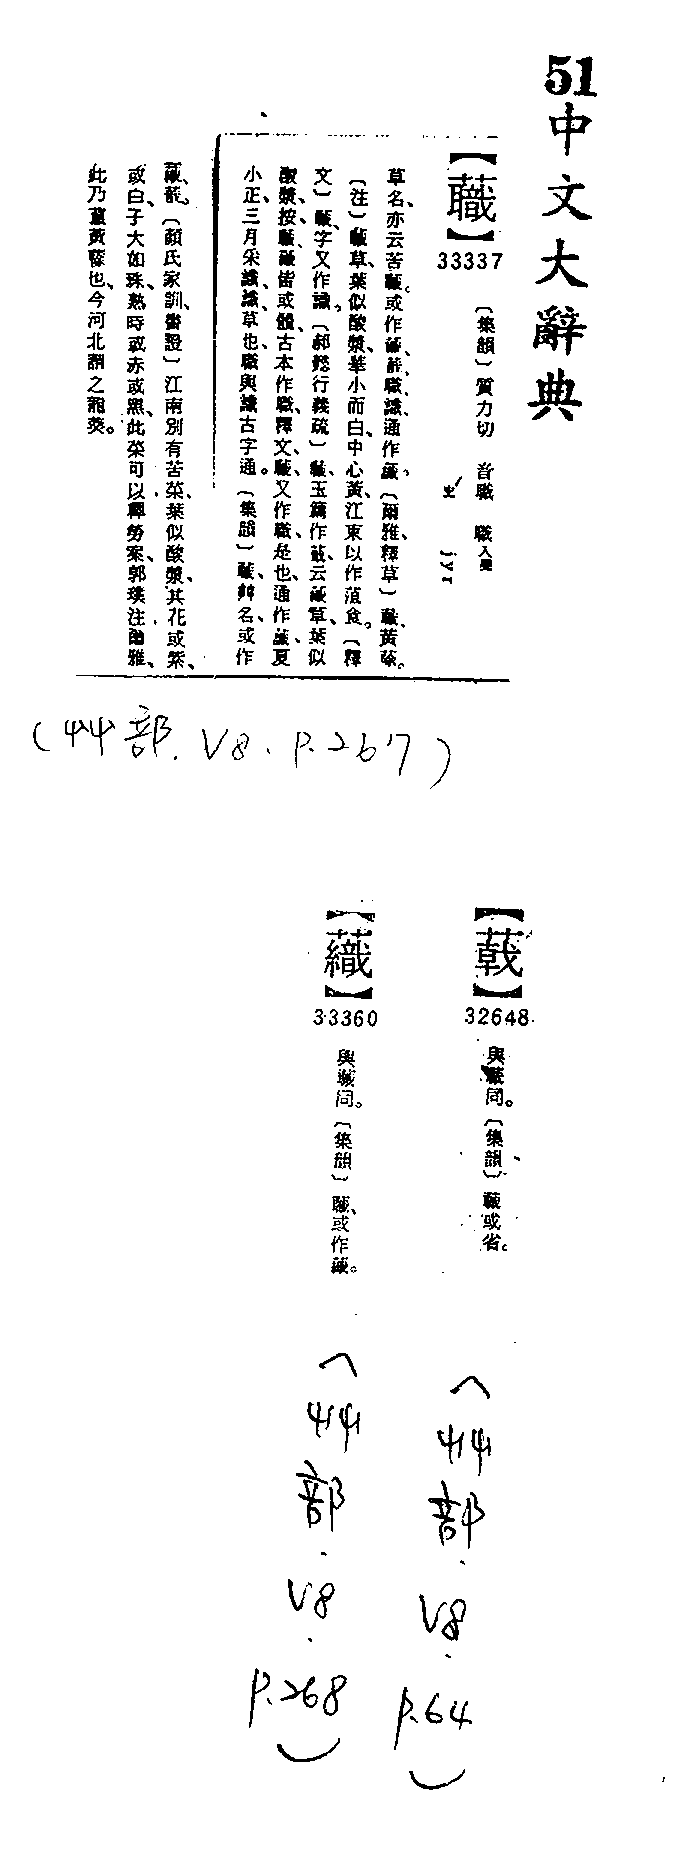 51
中文大辭典
【蘵】
33337
〔集韻〕質力切 音職 職入聲
ㄓˊ
jyr
草名、亦云苦蘵。或作蘵、通作。〔爾雅、釋草〕蘵、黃蒢。
〔注〕蘵草葉似酸漿、華小而白、中心黃、江東以作菹食。〔釋
文〕蘵字又作。〔郝懿行義疏〕蘵、玉篇作、云草、葉似
酸漿、按、皆或體、古本作職、釋文、蘵又作職、是也、通作、夏
小正、三月采識、識、草也、職與識古字通。〔集韻〕蘵、艸名、或作
〔顏氏家訓、書證〕江南別有苦菜、葉似酸漿、其花或紫、
或白、子大如珠、熟時或赤或黑、此菜可以釋勞、案、郭璞注爾雅、
此乃蘵黃蒢也、今河北謂之龍葵。
(艸部.V8.P.267)
【䕈】
32648
與蘵同。〔集韻〕蘵或省。
(艸部.V8.P.64)
【䕣】
33360
與蘵同。〔集韻〕蘵、或作。
(艸部.V8.P.268)